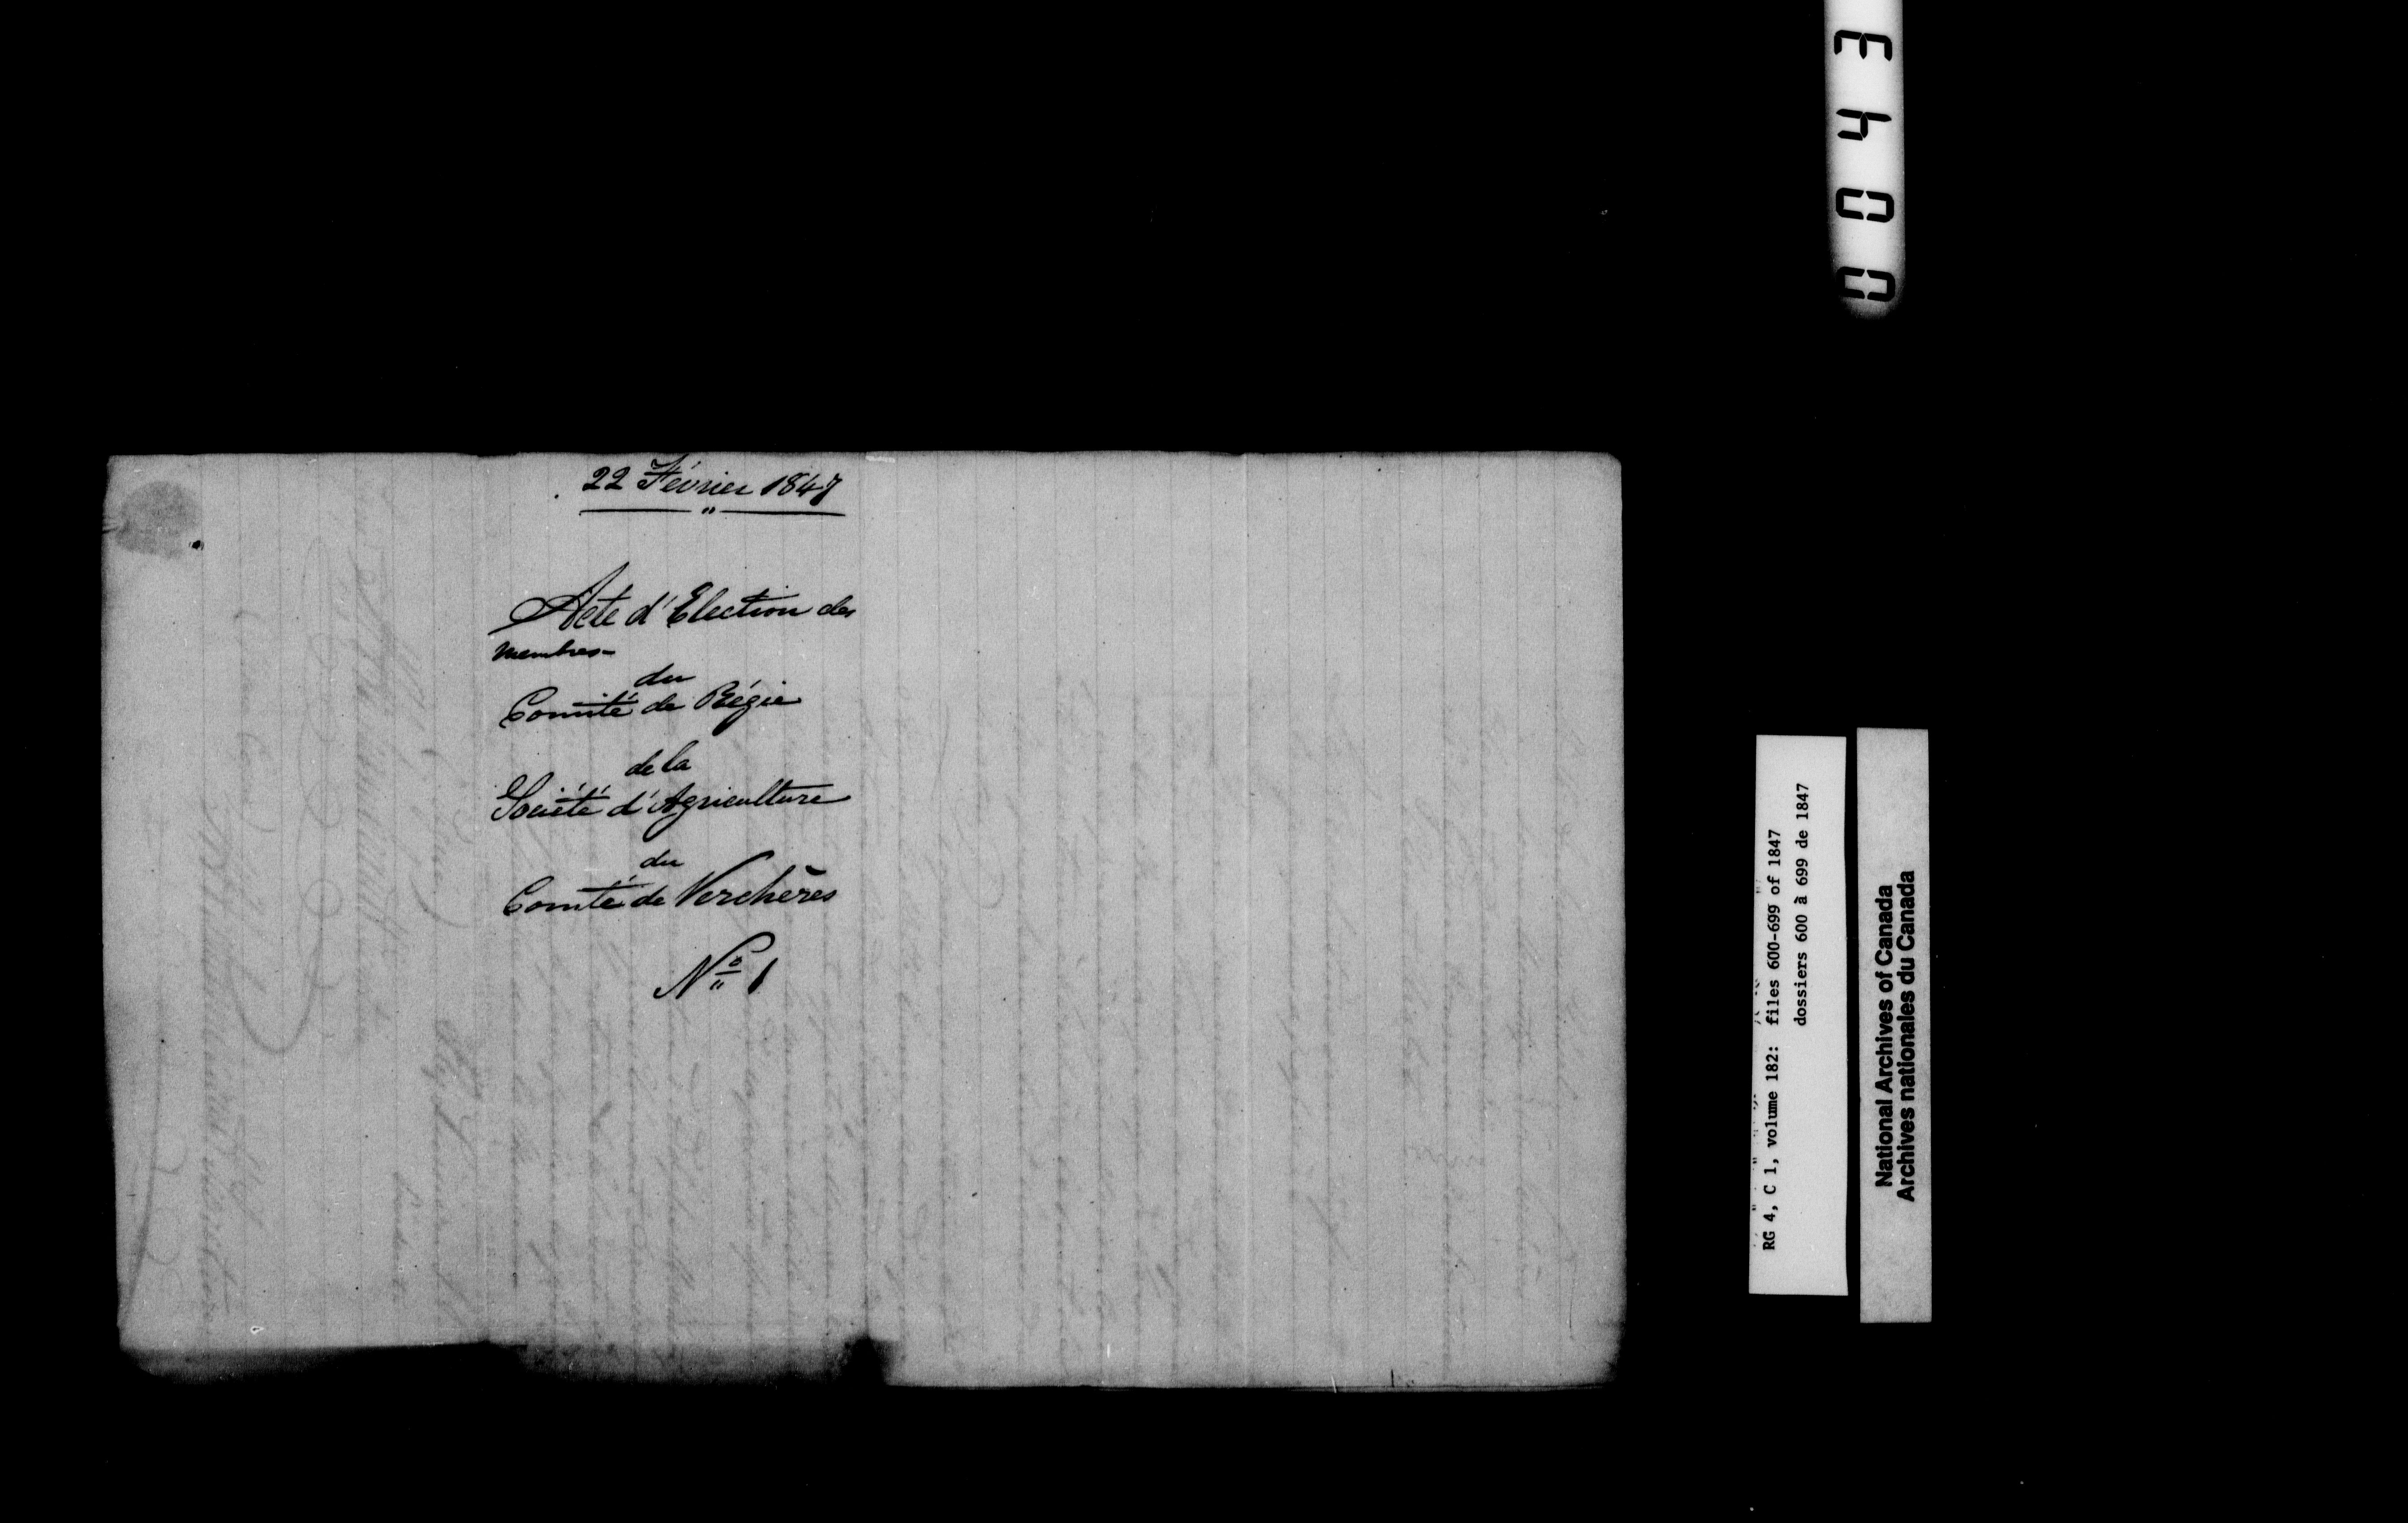 22 Février 1847
Acte d'Election des
membres
du
Comité de Régie
de la
Société d'Agriculture
du
Comté de Verchères
No 1
0043
RG 4, C 1, volume 182: files 600-699 of 1847
dossiers 600 à 699 de 1847
National Archives of Canada
Archives nationales du Canada